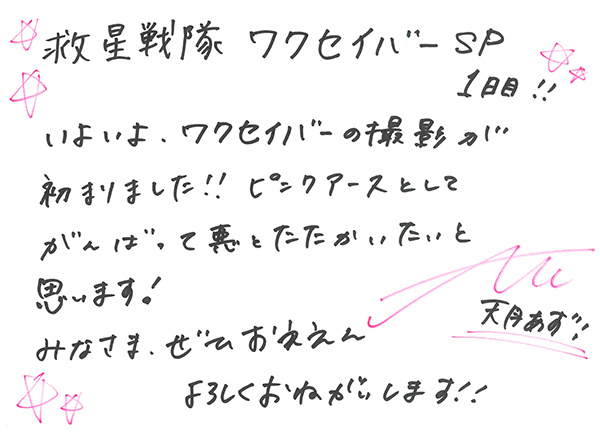 救星戦隊 ワクセイバーSP
1日目!!
いよいよ、ワクセイバーの撮影が
初まりました!! ピンクアースとして
がんばって悪とたたかいたいと
思います!
みなさま、ぜひおええん
よろしくおねがいします!!
天月あず